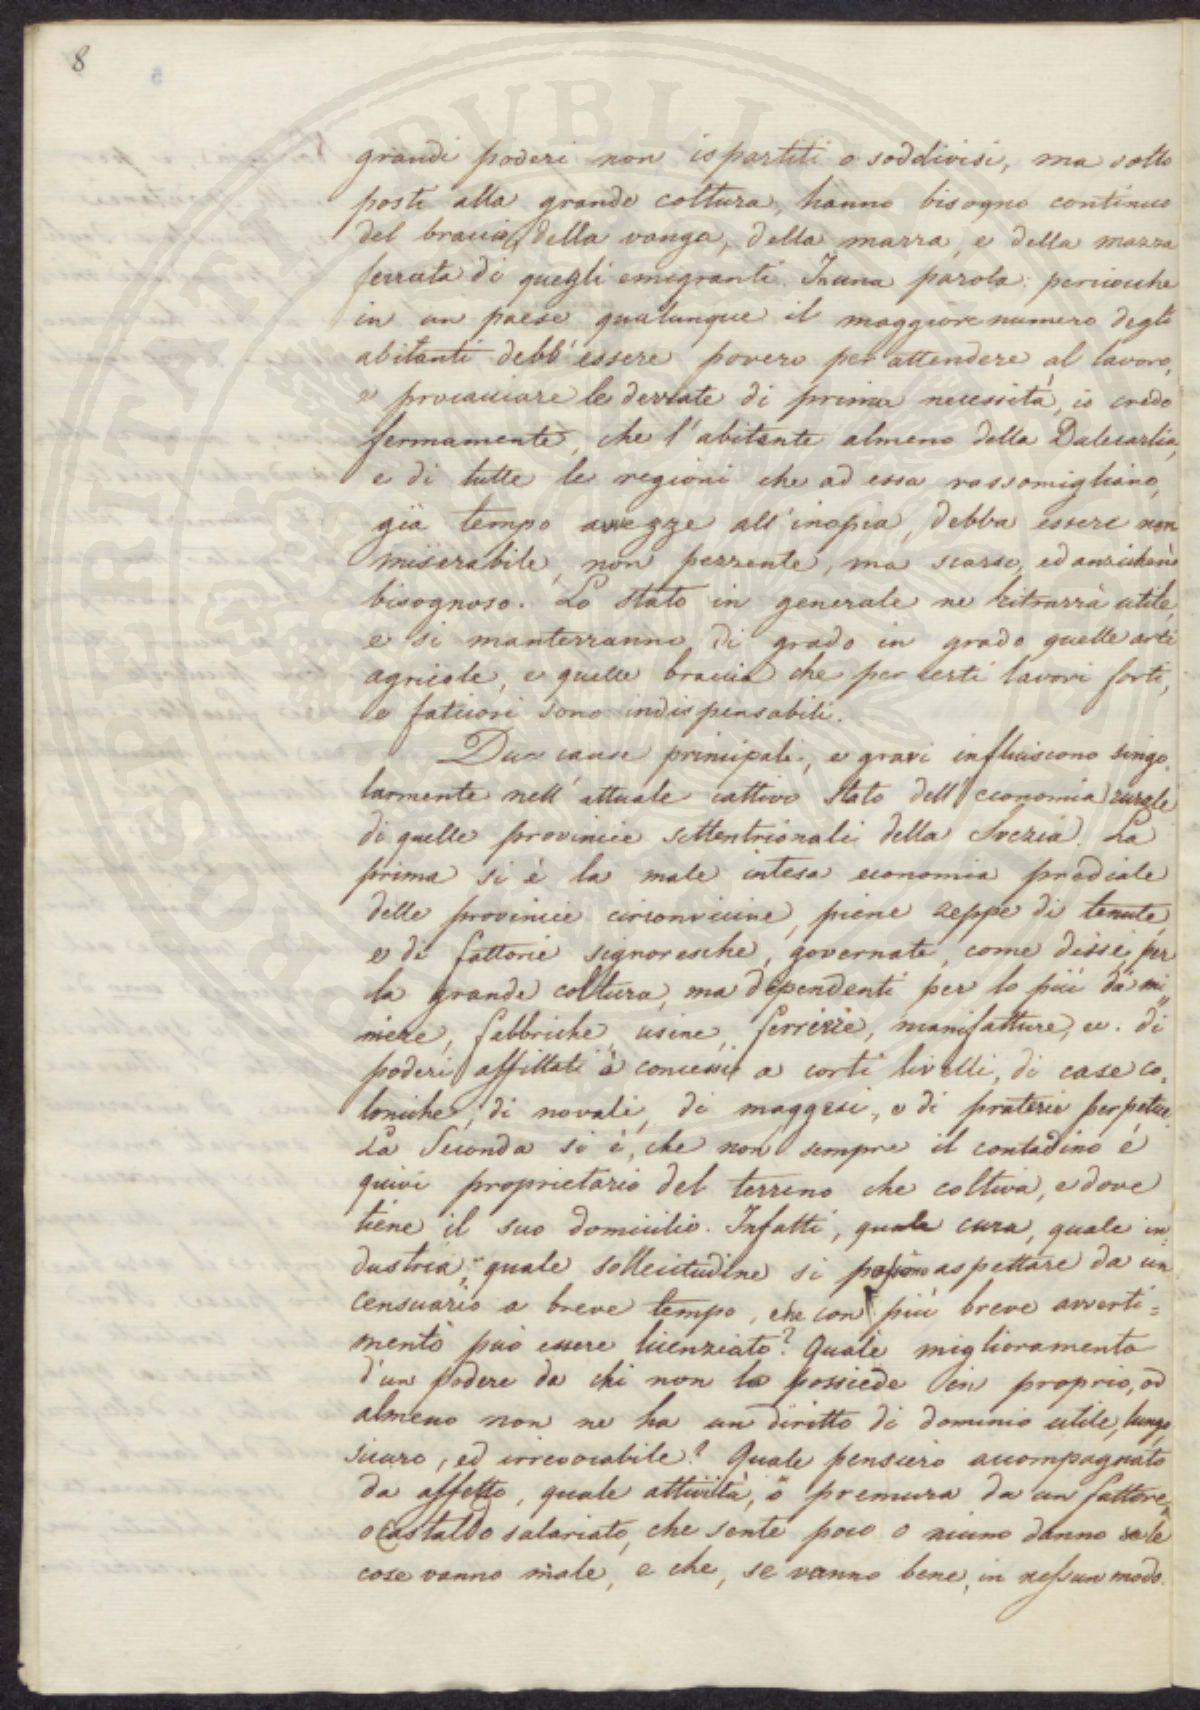 8
grandi poderi non ispartiti o soddivisi, ma sotto
posti alla grande coltura, hanno bisogno continuo
del braccio, della vanga, della marra, e della mazza
ferrata di quegli emigranti. In una parola: perciocche
in un paese qualunque il maggiore numero degli
abitanti debb'essere povero per attendere al lavoro,
e procacciare le derrate di prima necessità, io credo
fermamente, che l'abitante almeno della Dalecarlia,
e di tutte le regioni che ad essa rassomigliano,
già tempo avvezze all'inopia, debba essere non
miserabile, non pezzente, ma scarso, ed anzichenò
bisognoso. Lo stato in generale ne ritrarrà utile,
e si manterranno di grado in grado quelle arti
agricole, e quelle braccia che per certi lavori forti,
e faticosi sono indispensabili.
Due cause principali, e gravi influiscono singo-
larmente nell'attuale cattivo stato dell'economia rurale
di quelle provincie settentrionali della Svezia. La
prima si è la male intesa economia prediale
delle provincie circonvicine, piene zeppe di tenute,
e di fattorie signoresche, governate, come dissi, per
la grande coltura, ma dipendenti per lo più da mi
niere, fabbriche, usine, ferriere, manifatture, ec. di
poderi affittati o concessi a corti livelli, di case co-
loniche, di novali, di maggesi, e di praterie perpetue.
La Seconda si è, che non sempre il contadino è
quivi proprietario del terreno che coltiva, e dove
tiene il suo domicilio. Infatti, quale cura, quale in=
dustria, quale sollecitudine si possono aspettare da un
censuario a breve tempo, che con più breve avverti=
mento può essere licenziato? Quale miglioramento
d'un podere da chi non lo possiede in proprio, od
almeno non ne ha un diritto di dominio utile, lungo,
sicuro, ed irrevocabile? Quale pensiero accompagnato
da affetto, quale attività, o premura da un fattore,
o castaldo salariato, che sente poco o niuno danno se le
cose vanno male, e che, se vanno bene, in nessun modo